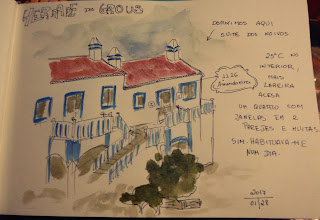 HERDADE DOS GROUS
DORMIMOS AQUI
SUITE DOS NOIVOS
25°C NO
INTERIOR,
MAIS
LAREIRA
ACESA
1126
Amendoeira
UM QUARTO COM
JANELAS EM 2
PAREDES E MUITAS
SIM. HABITUAVA-ME
NUM DIA.
2017
01/28